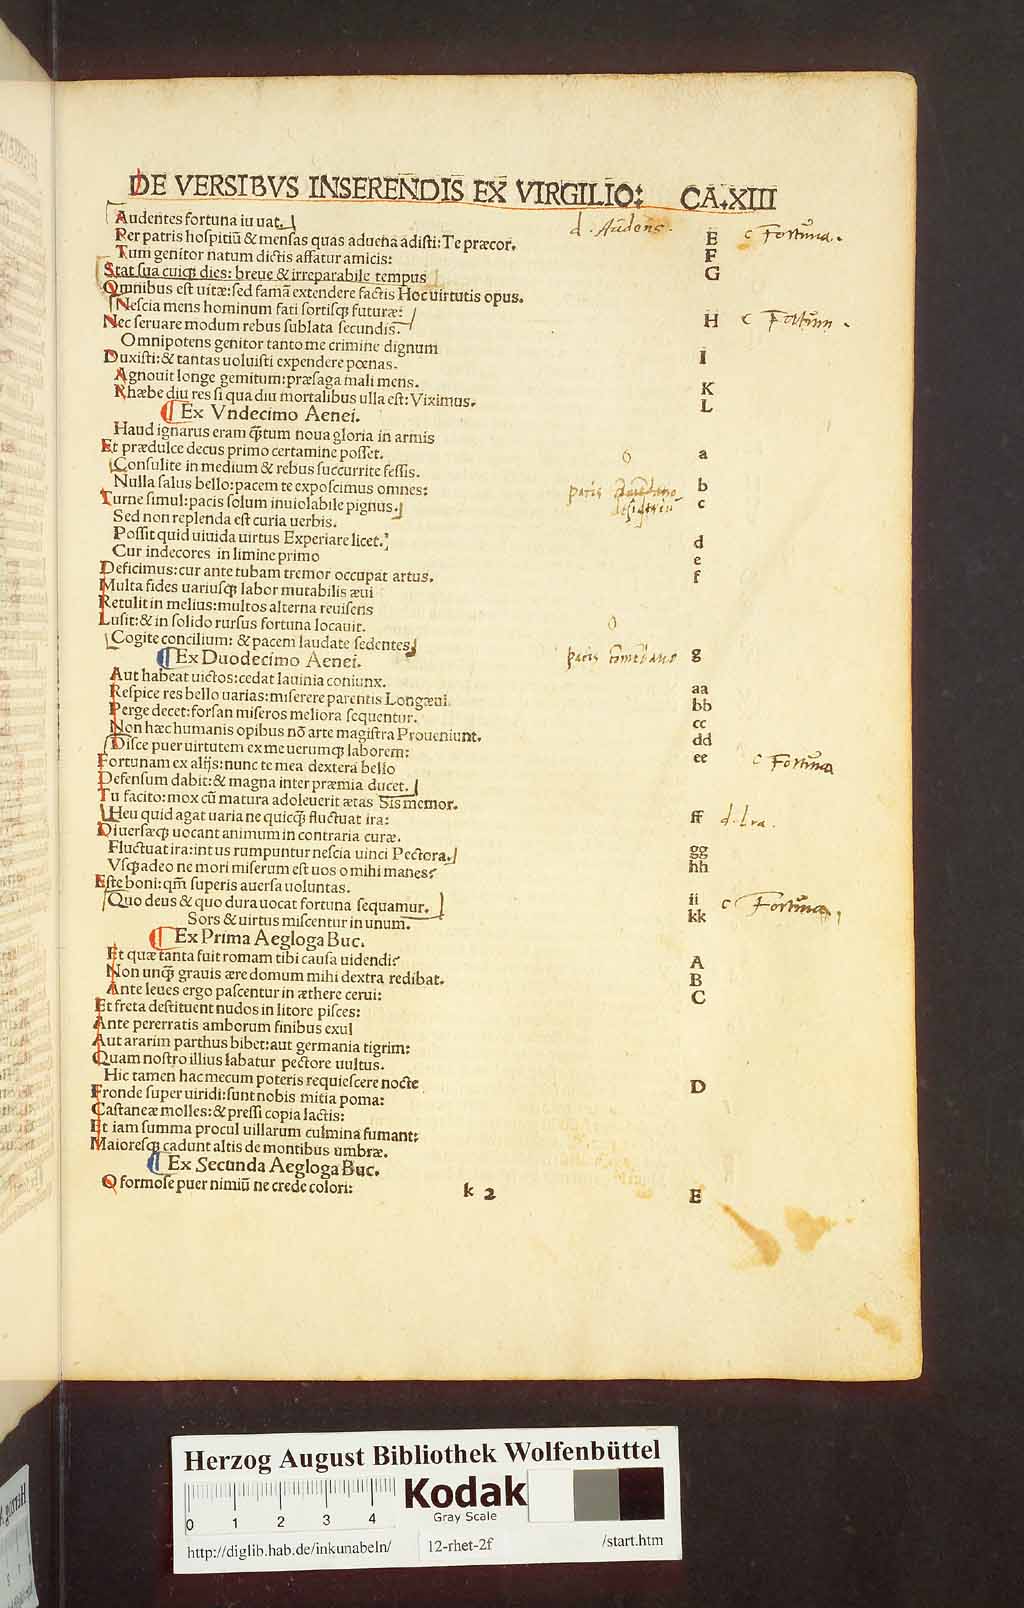 DE VERSIBVS INSERENDIS EX VIRGILIO: CA.XIII
Audentes fortuna iuuat. d. Audens.
Per patris hospitiū & mensas quas aduena adisti: Te præcor. E c Fortūna.
Tum genitor natum dictis affatur amicis: F
Stat sua cuiqꝫ dies: breue & irreparabile tempus G
Omnibus est uitæ: sed famā extendere factis Hoc uirtutis opus.
Nescia mens hominum fati sortisqꝫ futuræ:
Nec seruare modum rebus sublata secundis. H c Fortūn.
Omnipotens genitor tanto me crimine dignum
Duxisti: & tantas uoluisti expendere pœnas. I
Agnouit longe gemitum: præsaga mali mens. K
Rhæbe diu res si qua diu mortalibus ulla est: Viximus. L
¶ Ex Vndecimo Aenei.
Haud ignarus eram qꝫtum noua gloria in armis
Et prædulce decus primo certamine posset. a
Consulite in medium & rebus succurrite fessis.
Nulla salus bello: pacem te exposcimus omnes: b
Turne simul: pacis solum inuiolabile pignus. c pacis
Sed non replenda est curia uerbis.
Possit quid uiuida uirtus Experiare licet. d
Cur indecores in limine primo e
Deficimus: cur ante tubam tremor occupat artus. f
Multa fides uariusqꝫ labor mutabilis æui
Retulit in melius: multos alterna reuisens
Lusit: & in solido rursus fortuna locauit.
Cogite concilium: & pacem laudate sedentes
¶ Ex Duodecimo Aenei. pacis g
Aut habeat uictos: cedat lauinia coniunx. aa
Respice res bello uarias: miserere parentis Longæui. bb
Perge decet: forsan miseros meliora sequentur. cc
Non hæc humanis opibus nō arte magistra Proueniunt. dd
Disce puer uirtutem ex me uerumqꝫ laborem: ee
Fortunam ex alijs: nunc te mea dextera bello c Fortūna
Defensum dabit: & magna inter præmia ducet.
Tu facito: mox cū matura adoleuerit ætas Sis memor.
Heu quid agat uaria ne quicqꝫ fluctuat ira: ff d. Ira.
Diuersæqꝫ uocant animum in contraria curæ.
Fluctuat ira: intus rumpuntur nescia uinci Pectora. gg
Vsqꝫ adeo ne mori miserum est uos o mihi manes: hh
Este boni: qm̄ superis auersa uoluntas.
Quo deus & quo dura uocat fortuna sequamur. ii c Fortūna
Sors & uirtus miscentur in unum. kk
¶ Ex Prima Aegloga Buc.
Et quæ tanta fuit romam tibi causa uidendi? A
Non unqꝫ grauis ære domum mihi dextra redibat. B
Ante leues ergo pascentur in æthere cerui: C
Et freta destituent nudos in litore pisces:
Ante pererratis amborum finibus exul
Aut ararim parthus bibet: aut germania tigrim:
Quam nostro illius labatur pectore uultus.
Hic tamen hac mecum poteris requiescere nocte D
Fronde super uiridi: sunt nobis mitia poma:
Castaneæ molles: & pressi copia lactis:
Et iam summa procul uillarum culmina fumant:
Maioresqꝫ cadunt altis de montibus umbræ.
¶ Ex Secunda Aegloga Buc.
O formose puer nimiū ne crede colori: E
k 2
Herzog August Bibliothek Wolfenbüttel
0 1 2 3 4
Kodak
Gray Scale
http://diglib.hab.de/inkunabeln/ 12-rhet-2f /start.htm